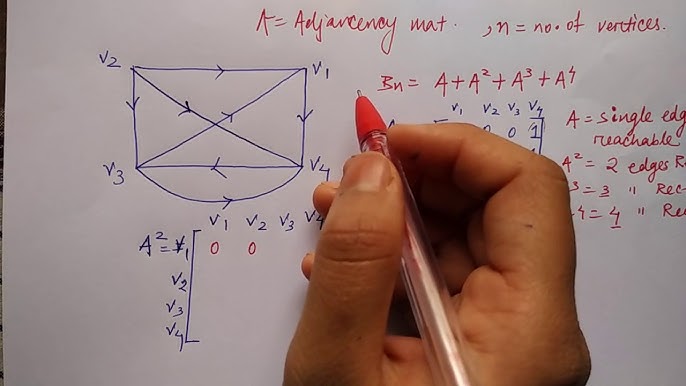 A = Adjancency mat. , n = no. of vertices.
Bn = A + A² + A³ + A⁴
v2 v1
v3 v4
v1 v2 v3 v4
0 0 1
A = single edg
reachable
A² = 2 edges R
3 = 3 " Rec-
4 = 4 " Rec
v1 v2 v3 v4
A² = v1 0 0
v2
v3
v4